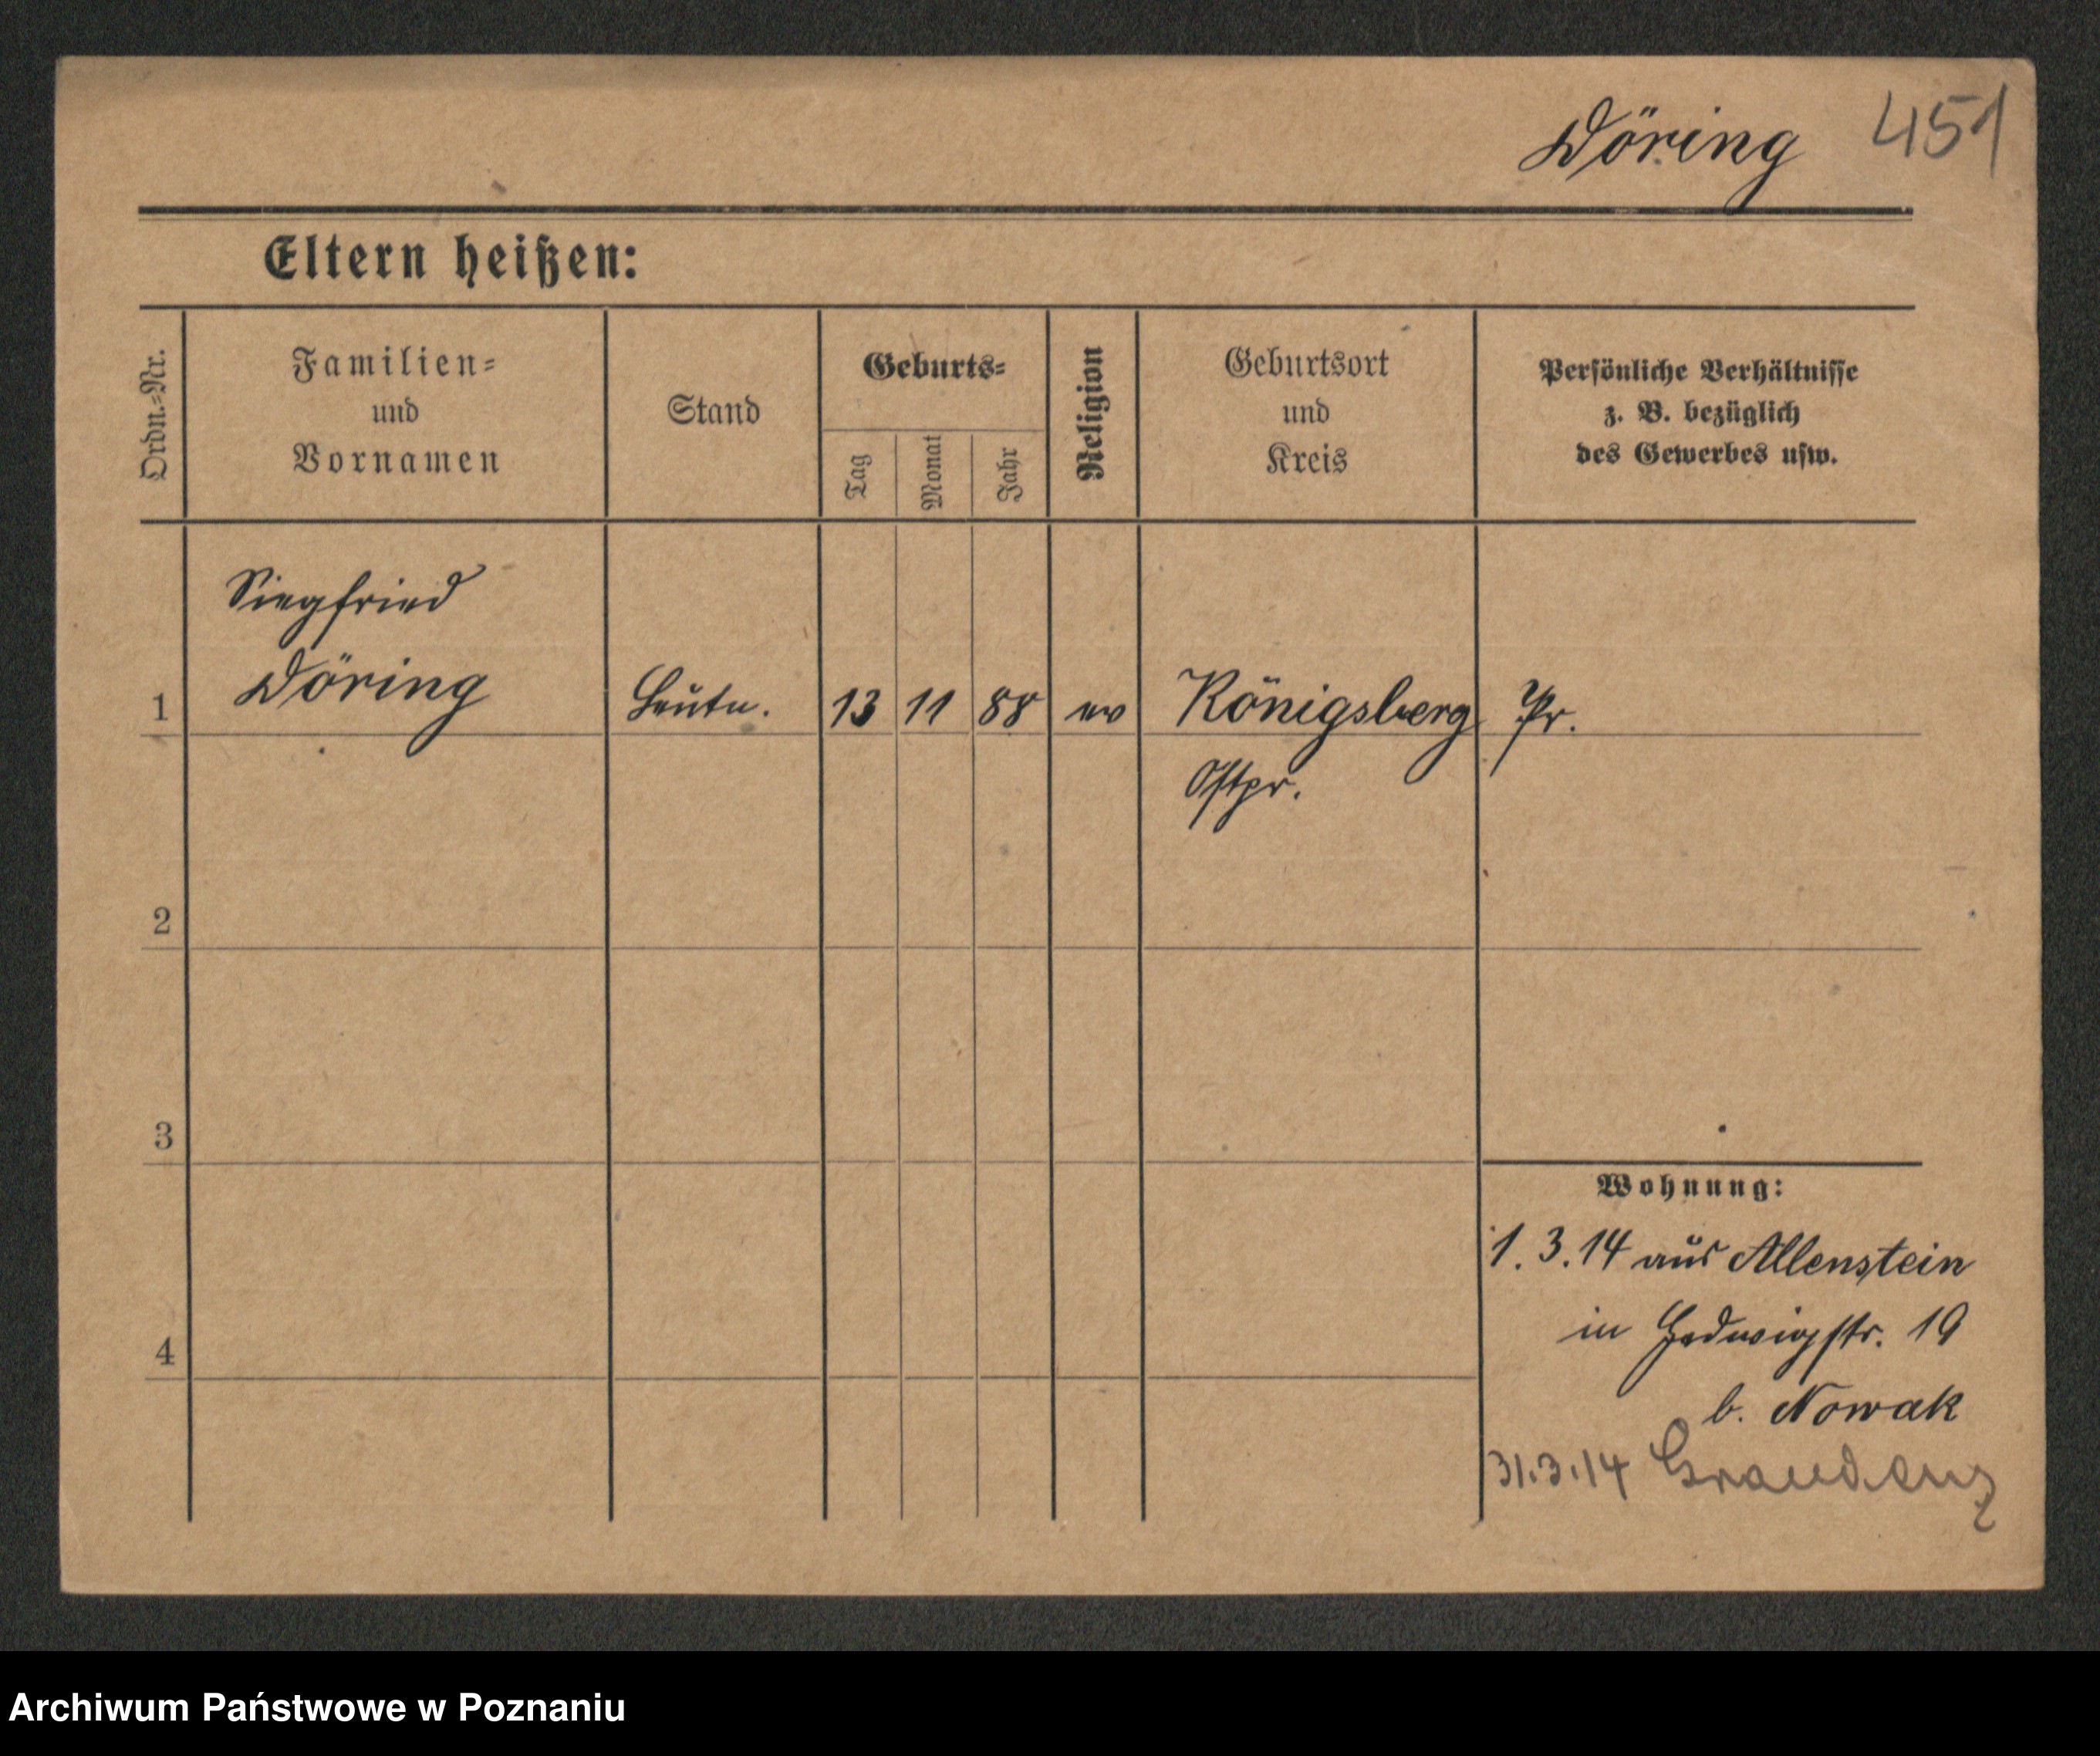 Döring 451
Eltern heißen:
Ordn.-Nr.
Familien-
und
Vornamen
Stand
Geburts-
Tag
Monat
Jahr
Religion
Geburtsort
und
Kreis
Persönliche Verhältnisse
z. B. bezüglich
des Gewerbes usw.
Siegfried
1 Döring Leutn. 13 11 88 ev Königsberg Pr.
Ostpr.
2
3
Wohnung:
1.3.14 aus Allenstein
in Hedwigstr. 19
4
b. Nowak
31.3.14 Graudenz
Archiwum Państwowe w Poznaniu